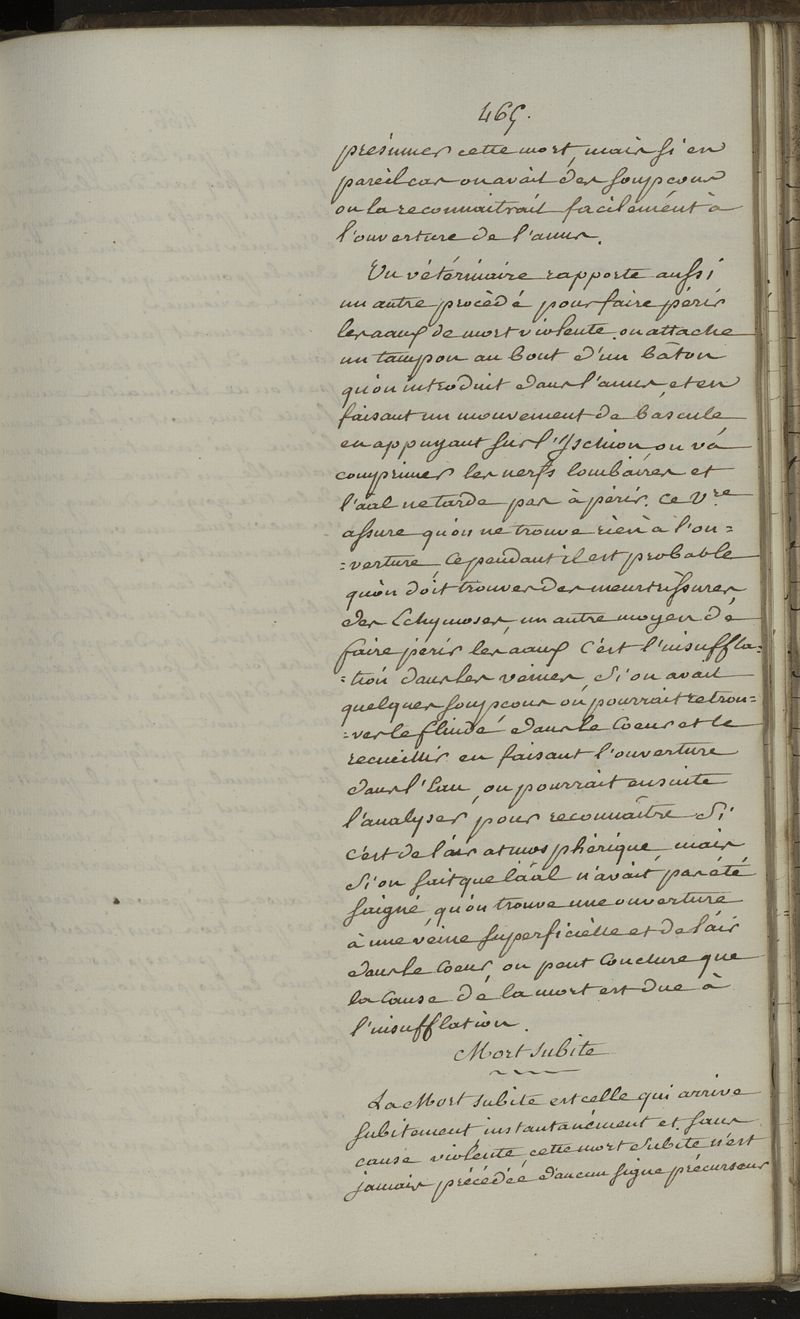 465.
présumer cette mort, mais si en
pareil cas on avait des soupcons
on la reconnaitrait facilement à
l'ouverture de l'anus.
Un vétérinaire rapporte aussi
un autre procèdé pour faire périr
les aaux de mort violente. on attache
un tampon au bout d'un bâton
qu'on introduit dans l'anus, et en
faisant un mouvement de bascule
en appuyant sur l'Ischion on va
comprimer les nerfs lombaires et
l'aal ne tarde pas à périr. Ce Vre
assure qu'on ne trouve rien à l'ou=
=verture, Cependant il est probable
qu'on doit trouver des meurtrissures
des Echymoses, un autre moyen de
faire périr les aaux c'est l'insuffla=
=tion dans les veines, Si on avait
quelques soupcons on pourrait retrou=
=ver le fluide dans le Coeur et le
recueillir en faisant l'ouverture
dans l'Eau, on pourrait ensuite
l'analyser pour reconnaître Si
c'est de l'air atmosphérique, mais
Si on sait que l'aal n'avait pas été
saigné, qu'on trouve une ouverture
à une veine superficielle et de l'air
dans le Coeur, on peut Conclure que
la Cause de la mort est due à
l'insufflation.
Mort Subite
La Mort Subite est celle qui arrive
subitement instantanément et sans
cause violente, cette mort Subite n'est
jamais précédée d'aucun signe précurseur